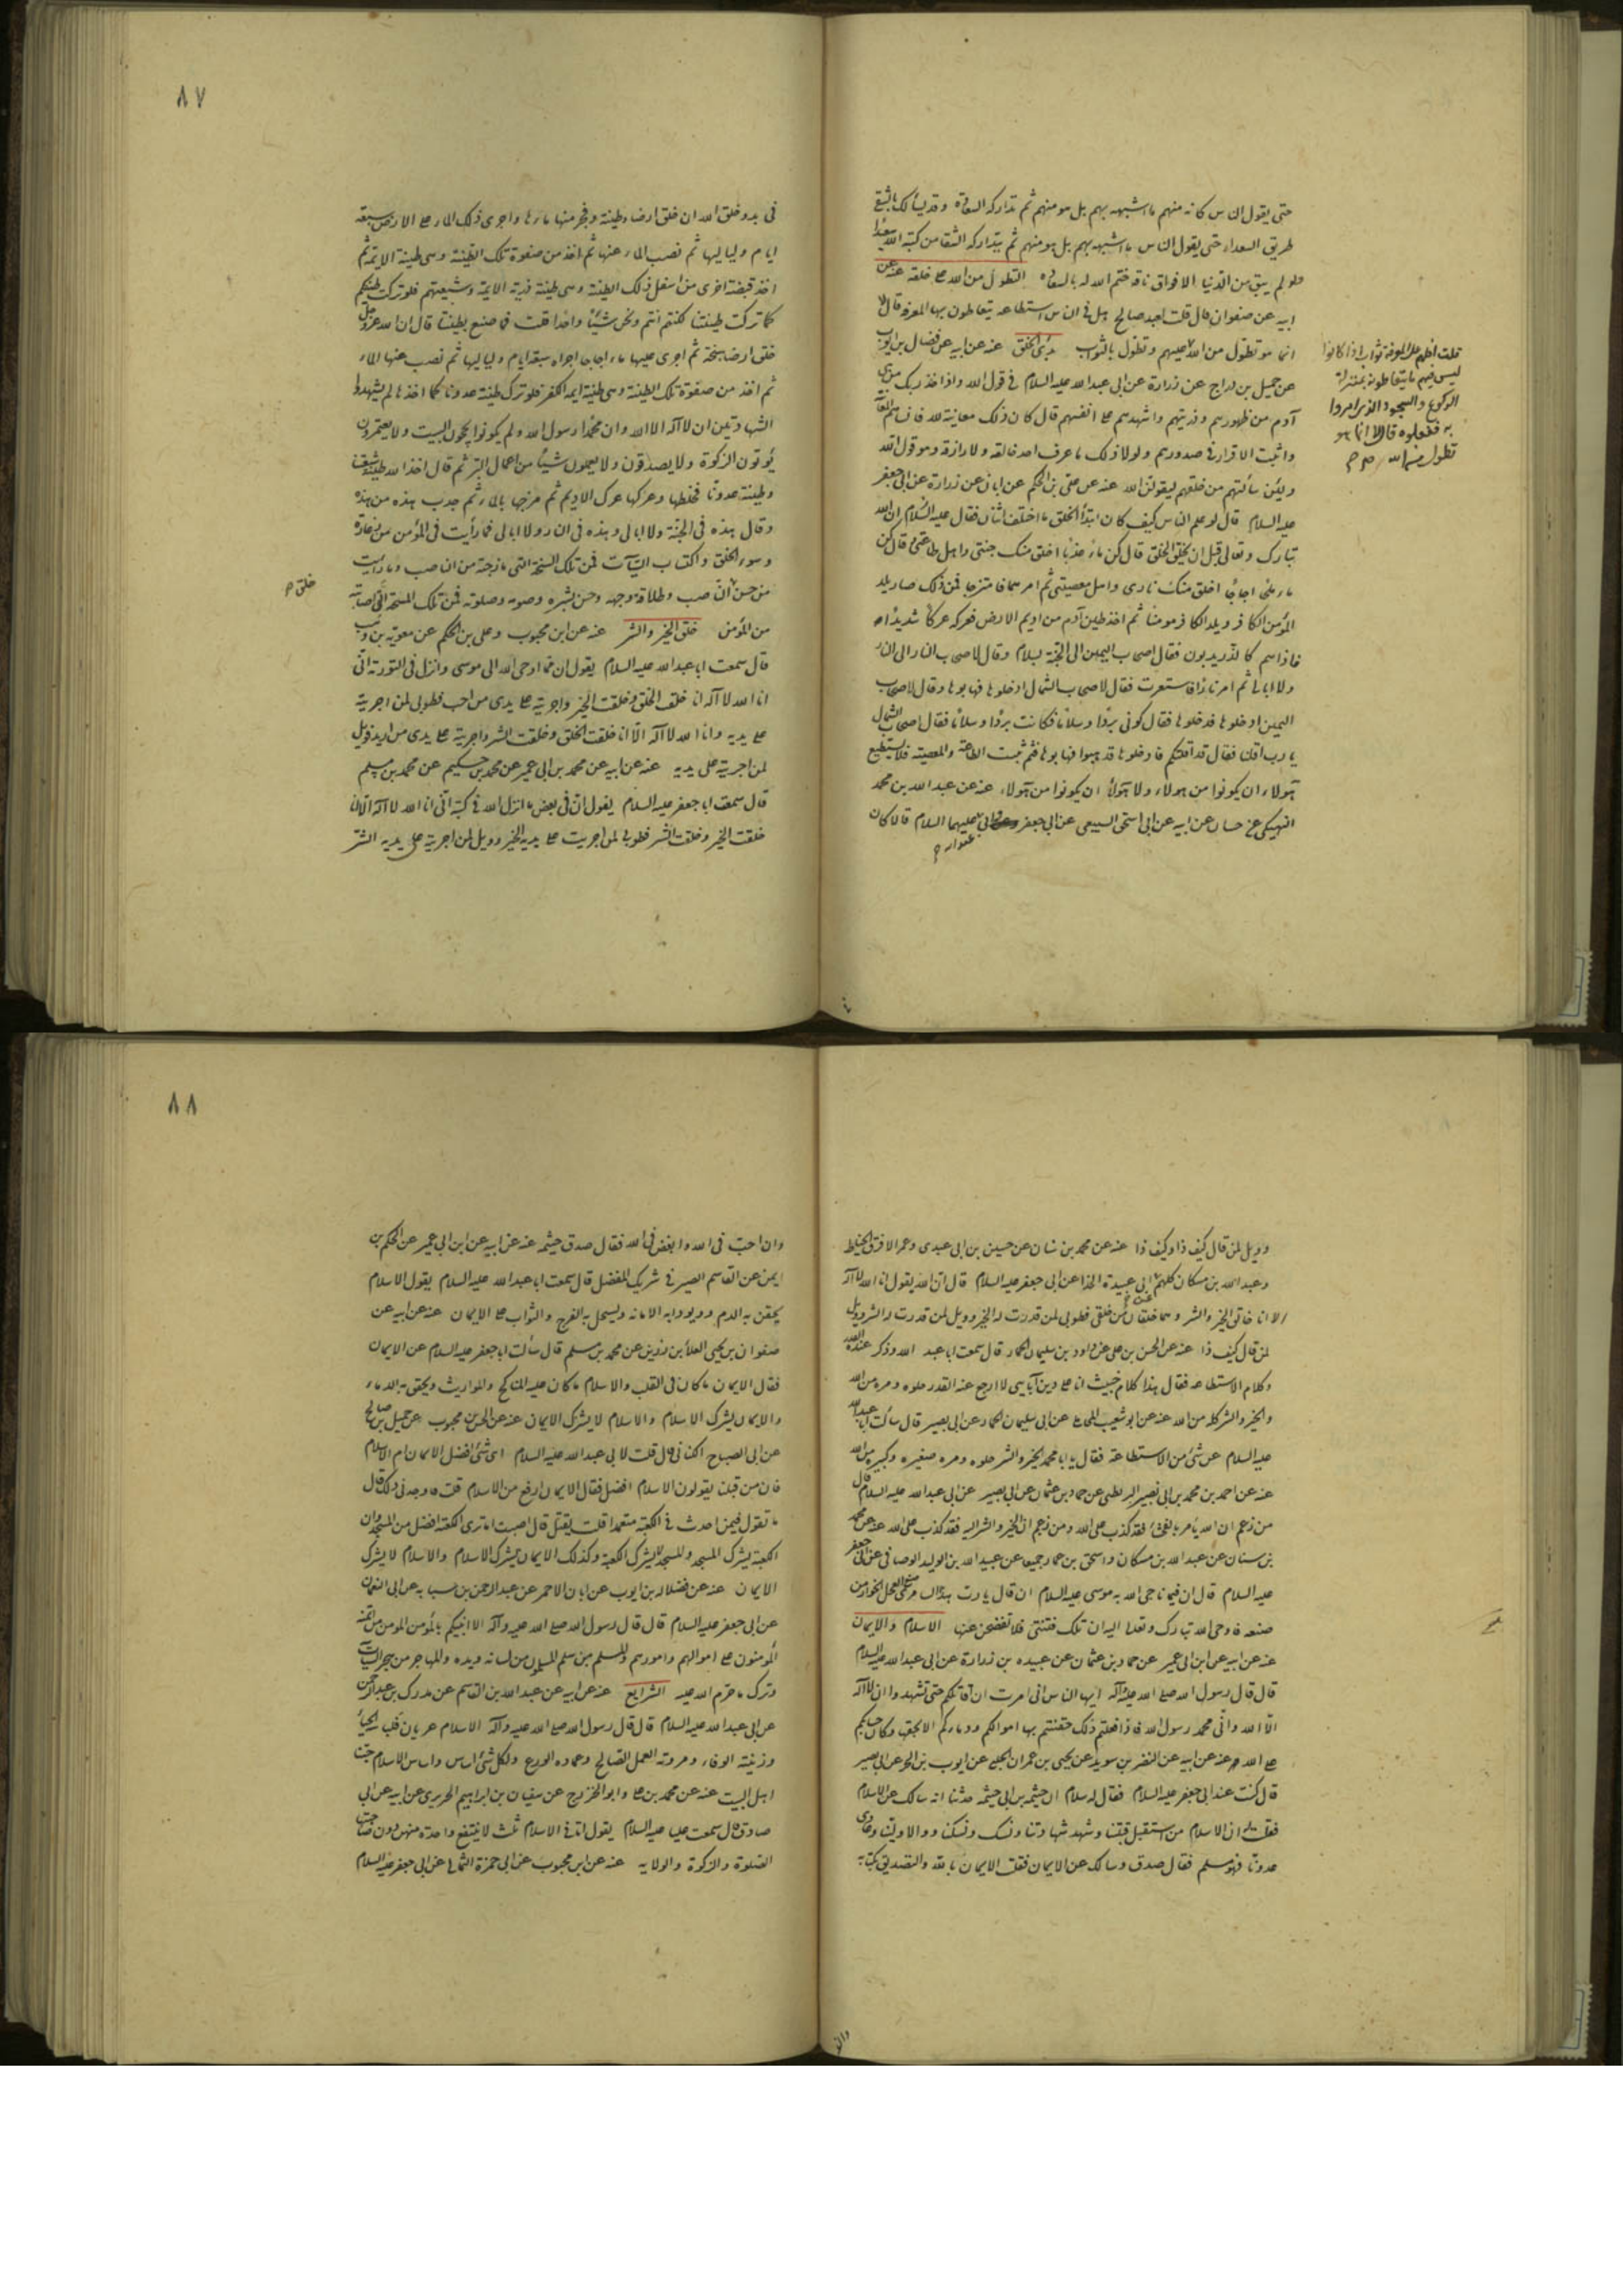 حتى يقول الناس كانه منهم ما اشبهه بهم بل هو منهم ثم تداركه السعادة وقد يسلك بالشقى
طريق السعداء حتى يقول الناس ما اشبهه بهم بل هو منهم ثم يتداركه الشقا من كتبه الله سعيدا
ولو لم يبق من الدنيا الا فواق ناقة ختم الله له بالسعادة التطول من الله على خلقه عنه عن
ابيه عن صفوان قال قلت لعبد صالح هل فى الناس استطاعة يتعاطون بها المعرفة قال لا
انما هو تطول من الله
قلت افلهم على المعرفة ثواب اذا كانوا
ليس فيهم ما يتعاطونه بمنزلة
الركوع والسجود الذى امروا
به ففعلوه قال لا انما هو
تطول من الله عليهم وتطول بالثواب بدؤ الخلق عنه عن ابيه عن فضال بن ايوب
عن جميل بن دراج عن زرارة عن ابى عبد الله عليه السلام فى قول الله واذا اخذ ربك من بنى
آدم من ظهورهم وذريتهم واشهدهم على انفسهم قال كان ذلك معاينة لله فانساهم المعاينة
واثبت الاقرار فى صدورهم ولولا ذلك ما عرف احد خالقه ولا رازقه وهو قول الله
ولئن سألتهم من خلقهم ليقولن الله عنه عن على بن الحكم عن ابان عن زرارة عن ابى جعفر
عليه السلام قال لو علم الناس كيف كان ابتدأ الخلق ما اختلف اثنان فقال عليه السلام ان الله
تبارك وتعالى قبل ان يخلق الخلق قال كن ماء عذبا اخلق منك جنتى واهل طاعتى وقال كن
ماء ملحا اجاجا اخلق منك نارى واهل معصيتى ثم امرهما فامتزجا فمن ذلك صار يلد
المؤمن الكافر ويلد الكافر مومنا ثم اخذ طين آدم من اديم الارض فعركه عركا شديدا
فاذا هم كالذر يدبون فقال لاصحاب اليمين الى الجنة بسلام وقال لاصحاب النار الى النار
ولا ابالى ثم امر نارا فاستعرت فقال لاصحاب الشمال ادخلوها فهابوها وقال لاصحاب
اليمين ادخلوها فدخلوها فقال كونى بردا وسلاما فكانت بردا وسلاما فقال اصحاب الشمال
يا رب اقلنا فقال قد اقلتكم فادخلوها فذهبوا فهابوها فثم ثبت الطاعة والمعصية فلا يستطيع
هولاء ان يكونوا من هولاء ولا هولاء ان يكونوا من هولاء عنه عن عبد الله بن محمد
النهيكى عن حسان عن ابيه عن ابى اسحق السبيعى عن ابى جعفر وابى عبد الله عليهما السلام قالا كان
٨٧
فى بدو خلق الله ان خلق ارضا وطينة وفجر منها ماءها واجرى ذلك الماء على الارض سبعة
ايام ولياليها ثم نضب الماء عنها ثم اخذ من صفوة تلك الطينة وهى طينة الائمة ثم
اخذ قبضة اخرى من اسفل ذلك الطينة وهى طينة ذرية الايمة وشيعتهم فلو تركت طينتكم
كما تركت طينتنا لكنتم انتم ونحن شيئا واحدا قلت فما صنع بطينتنا قال ان الله عز وجل
خلق ارضا سبخة ثم اجرى عليها ماء اجاجا اجراه سبعة ايام ولياليها ثم نضب عنها الماء
ثم اخذ من صفوة تلك الطينة وهى طينة ايمة الكفر فلو ترك طينة عدونا كما اخذها لم يشهدوا
الشهادتين ان لا آله الا الله وان محمدا رسول الله ولم يكونوا يحجون البيت ولا يعتمرون
يؤتون الزكوة ولا يصدقون ولا يعملون شيئا من اعمال البر ثم قال اخذ الله طينة شيعتنا
وطينة عدونا فخلطها وعركها عرك الاديم ثم مزجها بالماء ثم جذب هذه من هذه
وقال هذه فى الجنة ولا ابالى وهذه فى النار ولا ابالى فما رأيت فى المؤمن من زعارة
وسوء الخلق واكتساب السيآت فمن تلك السبخة التى مازجته من الناصب وما رأيت
من حسن خلق الناصب وطلاقة وجهه وحسن بشره وصومه وصلوته فمن تلك السبخة التى اصابته
من المؤمن خلق الخير والشر عنه عن ابن محبوب وعلى بن الحكم عن معوية بن وهب
قال سمعت ابا عبد الله عليه السلام يقول ان مما اوحى الله الى موسى وانزل فى التورية انى
انا الله لا آله انا خلقت الخلق وخلقت الخير واجريته على يدى من احب فطوبى لمن اجريته
على يديه وانا الله لا آله الا انا خلقت الخلق وخلقت الشر واجريته على يدى من اريد فويل
لمن اجريته على يديه عنه عن ابيه عن محمد بن ابى عمير عن محمد بن حكيم عن محمد بن مسلم
قال سمعت ابا جعفر عليه السلام يقول ان فى بعض ما انزل الله فى كتبه انى انا الله لا آله الا انا
خلقت الخير وخلقت الشر فطوبى لمن اجريت على يديه الخير وويل لمن اجريته على يديه الشر
وويل لمن قال كيف ذا وكيف ذا عنه عن محمد بن سنان عن حسين بن ابى عبدى وعمر الافرق الخياط
وعبد الله بن مسكان كلهم عن ابى عبيدة الحذا عن ابى جعفر عليه السلام قال ان الله يقول انا الله لا آله
الا انا خالق الخير والشر وهما خلقان من خلقى فطوبى لمن قدرت له الخير وويل لمن قدرت له الشر وويل
لمن قال كيف ذا عنه عن الحسن بن على عن داود بن سليمان الحمار قال سمعت ابا عبد الله وذكر عنده القدر
وكلام الاستطاعة فقال هذا كلام خبيث انا على دين آبايى لا ارجع عنه القدر حلوه ومره من الله
والخير والشر كله من الله عنه عن ابو شعيب المحاملى عن ابى سليمان الحمار عن ابى بصير قال سألت ابا عبد الله
عليه السلام عن شئ من الاستطاعة فقال يا با محمد الخير والشر حلوه ومره صغيره وكبيره من الله
عنه عن احمد بن محمد بن ابى نصير البزنطى عن حماد بن عثمان عن ابى بصير عن ابى عبد الله عليه السلام قال
من زعم ان الله يأمر بالفحشاء فقد كذب على الله ومن زعم ان الخير والشر اليه فقد كذب على الله عنه عن محمد
بن سنان عن عبد الله بن مسكان واسحق بن عمار جميعا عن عبيد الله بن الوليد الوصافى عن ابى جعفر
عليه السلام قال ان فيما ناجى الله به موسى عليه السلام ان قال يا رب هذا السامرى صنع العجل الخوار من
صنعه فاوحى الله تبارك وتعالى اليه ان تلك فتنتى فلا تفحصن عنها الاسلام والايمان
عنه عن ابيه عن ابن ابى عمير عن حماد بن عثمان عن عبيده بن زرارة عن ابى عبد الله عليه السلام
قال قال رسول الله صلى الله عليه وآله ايها الناس انى امرت ان اقاتلكم حتى تشهدوا ان لا آله
الا الله وانى محمد رسول الله فاذا فعلتم ذلك حقنتم بها اموالكم ودماءكم الا بحقها وكان حسابكم
على الله عنه عن ابيه عن النضر بن سويد عن يحيى بن عمران الحلبى عن ايوب بن الحر عن ابى بصير
قال كنت عند ابى جعفر عليه السلام فقال له سلام ان خيثمة بن ابى خيثمة حدثنا انه سالك عن الاسلام
فقلت له ان الاسلام من استقبل قبلتنا وشهد شهادتنا ونسك نسكنا ووالا ولينا وعادى
عدونا فهو مسلم فقال صدق وسالك عن الايمان فقلت الايمان بالله والتصديق بكتابه
٨٨
وان احب فى الله وابغض فى الله فقال صدق خيثمه عنه عن ابيه عن ابن ابى عمير عن الحكم بن
ايمن عن القاسم الصيرفى شريك المفضل قال سمعت ابا عبد الله عليه السلام يقول الاسلام
يحقن به الدم ويودى به الامانة ويستحل به الفرج والثواب على الايمان عنه عن ابيه عن
صفوان بن يحيى العلا بن رزين عن محمد بن مسلم قال سألت ابا جعفر عليه السلام عن الايمان
فقال الايمان ما كان فى القلب والاسلام ما كان عليه المناكح والمواريث ويحقن به الدماء
والايمان يشرك الاسلام والاسلام لا يشرك الايمان عنه عن الحسن بن محبوب عن جميل بن صالح
عن ابى الصباح الكنانى قال قلت لابى عبد الله عليه السلام اى شئ افضل الايمان ام الاسلام
فان من قبلنا يقولون الاسلام افضل فقال الايمان ارفع من الاسلام قلت فاوجدنى ذلك قال
ما تقول فيمن احدث فى الكعبة متعمدا قلت يقتل قال اصبت اما ترى الكعبة افضل من المسجد وان
الكعبة يشرك المسجد والمسجد لا يشرك الكعبة وكذلك الايمان يشرك الاسلام والاسلام لا يشرك
الايمان عنه عن فضاله بن ايوب عن ابان الاحمر عن عبد الرحمن بن سيابه عن ابى النعمان
عن ابى جعفر عليه السلام قال قال رسول الله صلى الله عليه وآله الا انبئكم بالمؤمن المومن من ائتمنه
المؤمنون على اموالهم وامورهم والمسلم من سلم المسلمون من لسانه ويده والمهاجر من هجر السيآت
وترك ما حرم الله عليه الشرايع عنه عن ابيه عن عبد الله بن القاسم عن مدرك بن عبد الرحمن
عن ابى عبد الله عليه السلام قال قال رسول الله صلى الله عليه وآله الاسلام عريان فلباسه الحيا
وزينته الوفاء ومروته العمل الصالح وعماده الورع ولكل شئ اساس واساس الاسلام حبنا
اهل البيت عنه عن محمد بن على وابو الخزرج عن سفيان بن ابراهيم الحريرى عن ابيه عن ابى
صادق قال سمعت عليا عليه السلام يقول اثافى الاسلام ثلث لا ينتفع واحدة منهن دون صاحبتها
الصلوة والزكوة والولاية عنه عن ابن محبوب عن ابى حمزة الثمالى عن ابى جعفر عليه السلام